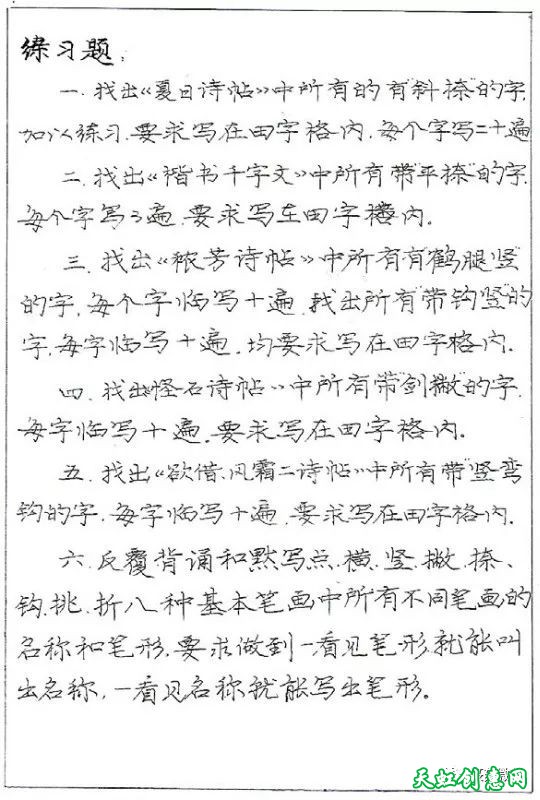 练习题:
一.找出《夏日诗帖》中所有的有"斜捺"的字,
加以练习.要求写在田字格内.每个字写二十遍
二.找出《楷书千字文》中所有带"平捺"的字.
每个字写3遍.要求写在田字格内.
三.找出《秾芳诗帖》中所有有"鹤腿竖"
的字.每个字临写十遍.找出所有"带钩竖"的
字.每字临写十遍.均要求写在田字格内.
四.找出《怪石诗帖》中所有带"剑撇"的字.
每字临写十遍.要求写在田字格内.
五.找出《欲借、风霜二诗帖》中所有带"竖弯
钩的字.每字临写十遍.要求写在田字格内.
六.反覆背诵和默写点.横.竖.撇.捺、
钩.挑.折八种基本笔画中所有不同笔画的
名称和笔形.要求做到一看见笔形就能叫
出名称.一看见名称就能写出笔形.
天虹创意网